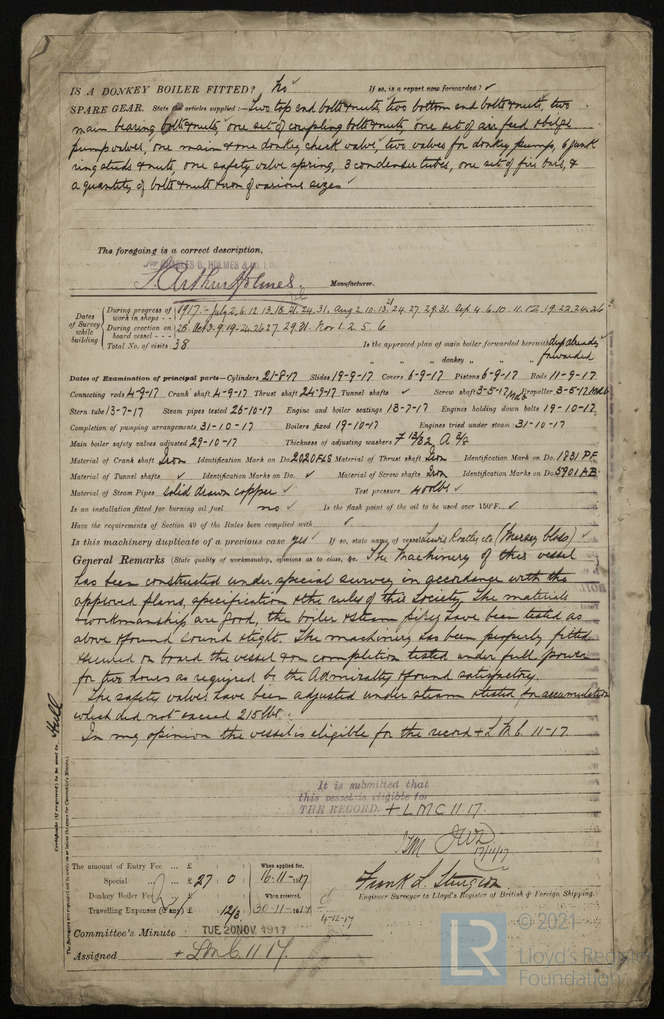 IS A DONKEY BOILER FITTED? No ✓ If so, is a report now forwarded? ✓
SPARE GEAR. State the articles supplied:— Two top end bolts & nuts, two bottom end bolts & nuts, two
main bearing bolts & nuts, one set of coupling bolts & nuts, one set of air feed & bilge
pump valves, one main & one donkey check valve, two valves for donkey pump, 6 junk
ring studs & nuts, one safety valve spring, 3 condenser tubes, one set of fire bars, &
a quantity of bolts & nuts & iron of various sizes ✓
The foregoing is a correct description,
for CHARLES D. HOLMES & Co. Ltd.
F. Arthur Holmes Manufacturer.
Dates of Survey while building
During progress of work in shops - - 1917. - July 2. 6. 12. 13. 18. 21. 24. 31. Aug 2. 10. 13. 21. 24. 27. 29. 31. Sep 4. 6. 10. 11. 12. 19. 22. 24. 26
During erection on board vessel - - - 28. Oct 3. 9. 19. 24. 26. 27. 29. 31. Nov 1. 2. 5. 6
Total No. of visits 38 Is the approved plan of main boiler forwarded herewith dup already
" " " donkey " " " forwarded
Dates of Examination of principal parts—Cylinders 21-8-17 Slides 19-9-17 Covers 6-9-17 Pistons 6-9-17 Rods 11-9-17
Connecting rods 4-9-17 Crank shaft 4-9-17 Thrust shaft 24-9-17 Tunnel shafts ✓ Screw shaft 3-5-17 Propeller 3-5-17
Stern tube 13-7-17 Steam pipes tested 26-10-17 Engine and boiler seatings 13-7-17 Engines holding down bolts 19-10-17
Completion of pumping arrangements 31-10-17 Boilers fixed 19-10-17 Engines tried under steam 31-10-17
Main boiler safety valves adjusted 29-10-17 Thickness of adjusting washers F 13/32 A 3/8
Material of Crank shaft Iron Identification Mark on Do. 2020FLS Material of Thrust shaft Iron Identification Mark on Do. 1831 PF
Material of Tunnel shafts ✓ Identification Marks on Do. ✓ Material of Screw shafts Iron Identification Marks on Do. 5901AB
Material of Steam Pipes solid drawn copper ✓ Test pressure 400lbs ✓
Is an installation fitted for burning oil fuel no ✓ Is the flash point of the oil to be used over 150°F. ✓
Have the requirements of Section 49 of the Rules been complied with ✓
Is this machinery duplicate of a previous case yes ✓ If so, state name of vessel Lewis Roatley, etc (Mersey class) ✓
General Remarks (State quality of workmanship, opinions as to class, &c. The Machinery of this vessel
has been constructed under special survey in accordance with the
approved plans, specification & the rules of this Society. The materials
& workmanship are good, the boiler & steam pipes have been tested as
above & found sound & tight. The machinery has been properly fitted
& secured on board the vessel & on completion tested under full power
for two hours as required by the Admiralty & found satisfactory.
The safety valves have been adjusted under steam & tested for accumulation
which did not exceed 215 lbs.
In my opinion the vessel is eligible for the record + L.M.C. 11-17.
It is submitted that
this vessel is eligible for
THE RECORD. + LMC 11.17.
JWD
17/11/17
The amount of Entry Fee ... £ When applied for,
Special ... £ 27 : 0 : 16-11-1917
Donkey Boiler Fee ... £ When received,
Travelling Expenses (if any) £ 12/8 30-11-1917
4-12-17
Frank L. Sturgeon
Engineer Surveyor to Lloyd's Register of British & Foreign Shipping.
Committee's Minute TUE. 20 NOV. 1917
Assigned + LMC 11 17.
Certificate (if required) to be sent to Hull
© 2021
LR
Lloyd's Register
Foundation